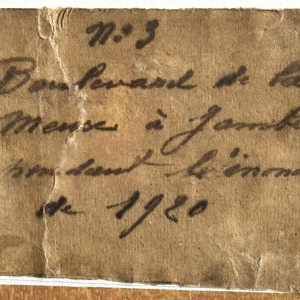 N: 3
Boulevard de la
Meuse à Jamb
pendant l'inon
de 1920